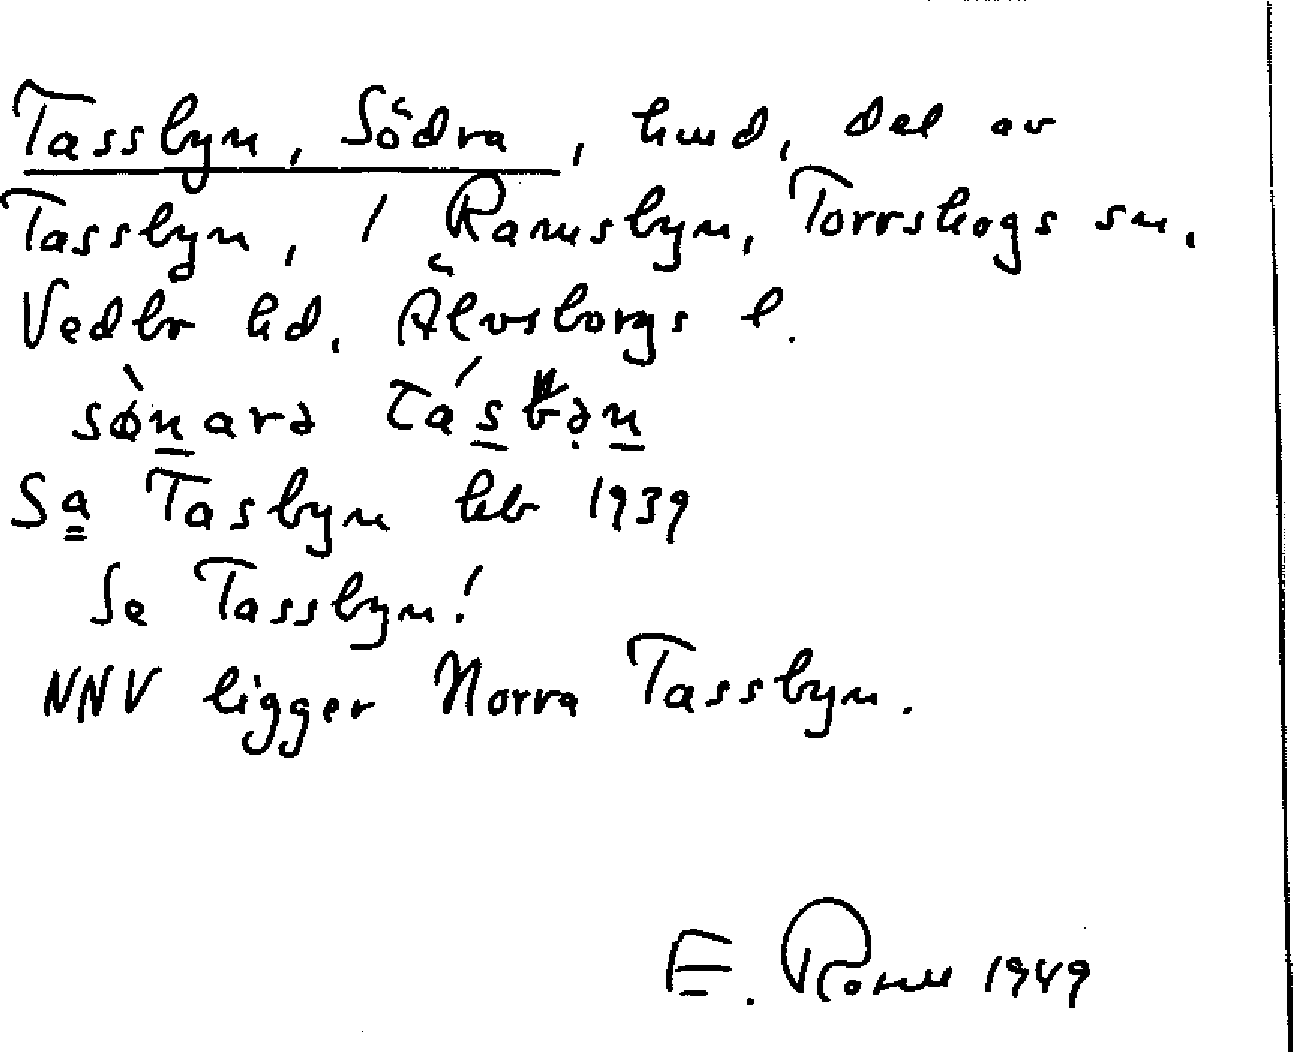 Tassbyn, Södra, hmd, del av
Tassbyn, i Ramsbyn, Torrskogs sn,
Vedbo hd, Älvsborgs l.
sø̀narə
Sa Tasbyn kb 1939
Se Tassbyn!
NNV ligger Norra Tassbyn.
E. 1949